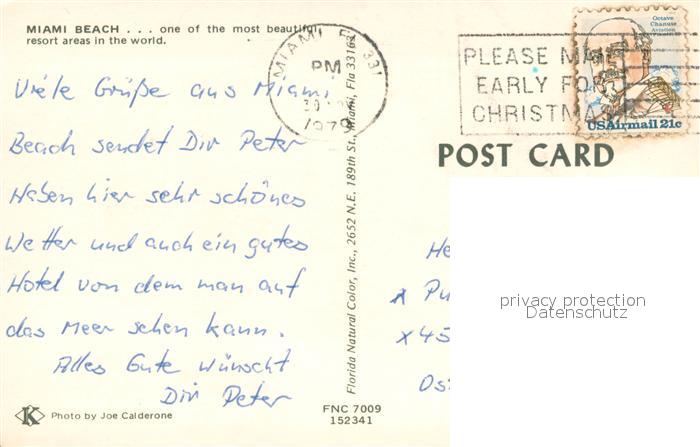 MIAMI BEACH . . . one of the most beautiful
resort areas in the world.
Viele Grüße aus Miami
Beach sendet Dir Peter
Haben hier sehr schönes
Wetter und auch ein gutes
Hotel von dem man auf
das Meer sehen kann.
Alles Gute wünscht
Dir Peter
K
Photo by Joe Calderone
Florida Natural Color, Inc., 2652 N.E. 189th St., Miami, Fla 33163
FNC 7009
152341
MIAMI FL 331
PM
30
1979
PLEASE MAIL
EARLY FOR
CHRISTMAS
Octave
Chanute
Aviation
USAirmail 21c
POST CARD
He
x Pu
x 45
Os
privacy protection
Datenschutz